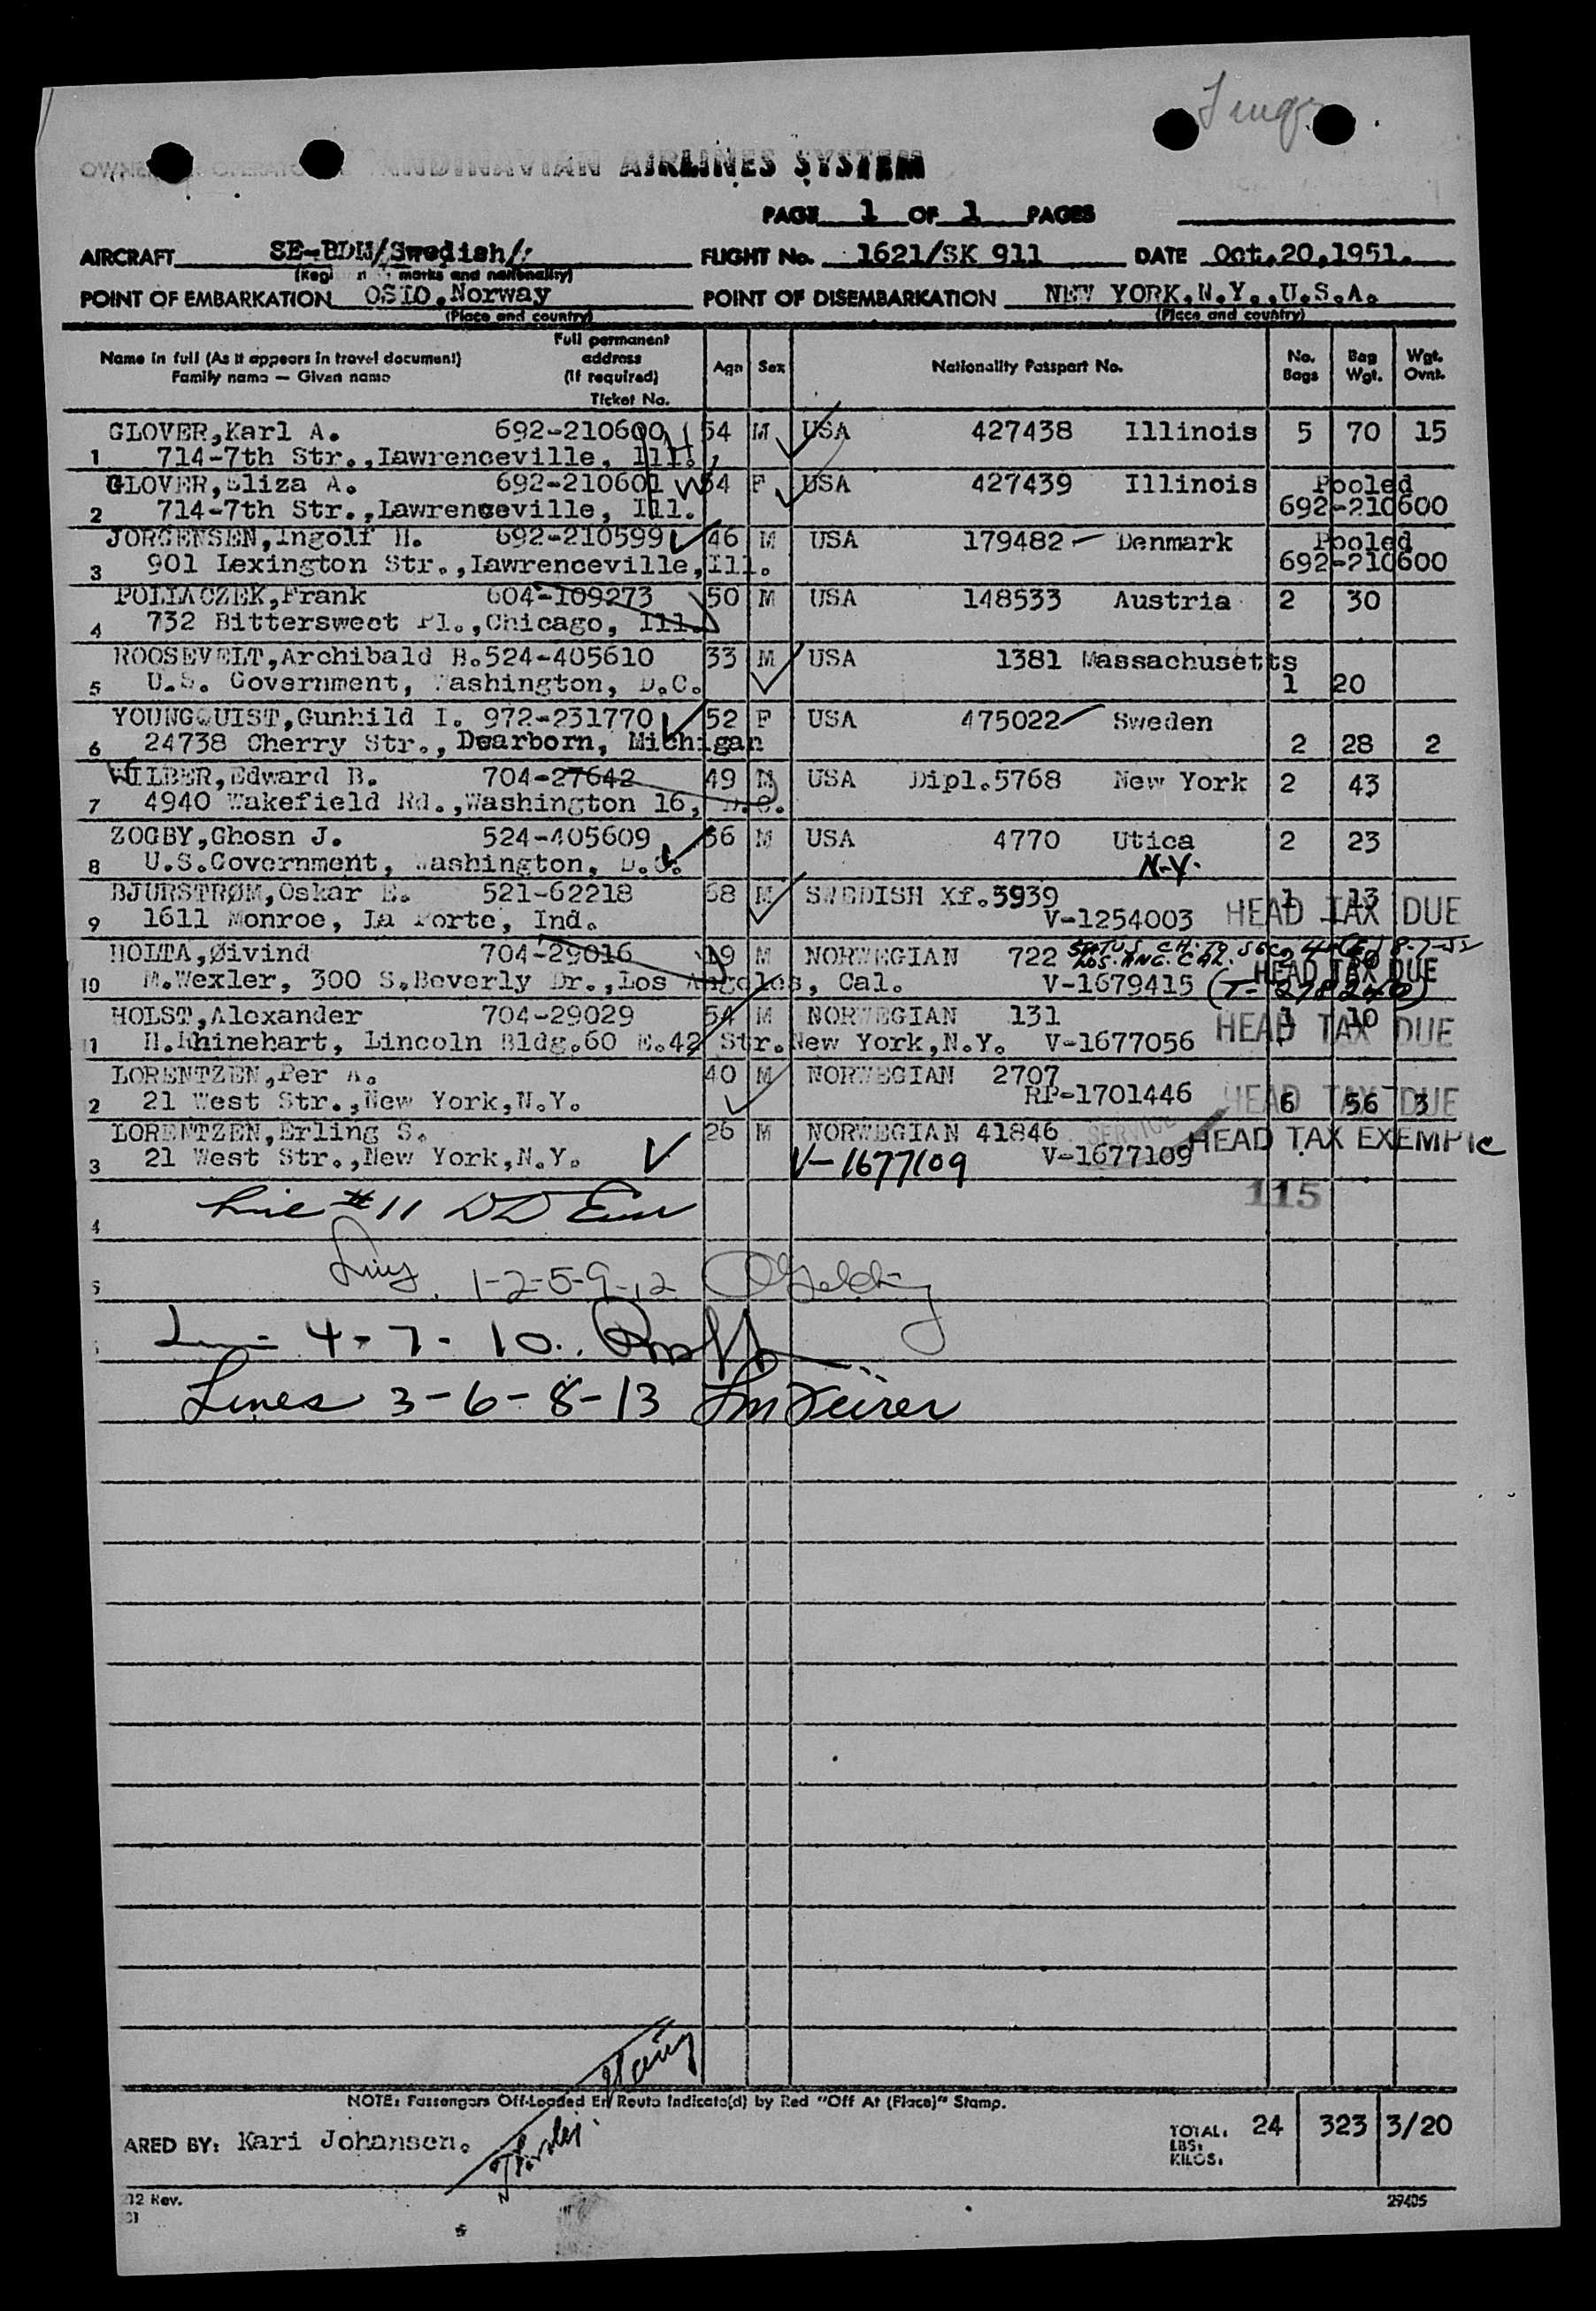 AIRLINES SYSTEM
PAGE 1 OF 1 PAGES
AIRCRAFT SE-BDM/Swedish/: FLIGHT No. 1621/SK 911 DATE Oct.20,1951.
marks and nationality)
POINT OF EMBARKATION OSLO,Norway POINT OF DISEMBARKATION NEW YORK,N.Y.,U.S.A.
(Place and country) (Place and country)
Name in full (As it appears in travel document) Full permanent address (If required) Age Sex Nationality Passport No. No. Bags Bag Wgt. Wgt. Ovnt.
Family name — Given name Ticket No.
GLOVER,Karl A. 692-210600 54 M USA 427438 Illinois 5 70 15
1 714-7th Str.,Lawrenceville, Ill.
GLOVER,Eliza A. 692-210601 54 F USA 427439 Illinois Pooled
2 714-7th Str.,Lawrenceville, Ill. 692-210600
JORGENSEN,Ingolf H. 692-210599 46 M USA 179482 Denmark Pooled
3 901 Lexington Str.,Lawrenceville,Ill. 692-210600
POLLACZEK,Frank 604-109273 50 M USA 148533 Austria 2 30
4 732 Bittersweet Pl.,Chicago, Ill.
ROOSEVELT,Archibald B.524-405610 33 M USA 1381 Massachusetts
5 U.S. Government, Washington, D.C. 1 20
YOUNGQUIST,Gunhild I. 972-231770 52 F USA 475022 Sweden
6 24738 Cherry Str., Dearborn, Michigan 2 28 2
WILBER,Edward B. 704-27642 49 M USA Dipl.5768 New York 2 43
7 4940 Wakefield Rd.,Washington 16, D.C.
ZOGBY,Ghosn J. 524-405609 36 M USA 4770 Utica 2 23
8 U.S.Government, Washington, D.C. N.Y.
BJURSTRØM,Oskar E. 521-62218 68 M SWEDISH Xf.5939 1 13
9 1611 Monroe, La Porte, Ind. V-1254003 HEAD TAX DUE
HOLTA,Øivind 704-29016 19 M NORWEGIAN 722 STATUS CH. TO SEC. 4(E) 8-7-52
LOS. ANG. CAL.
10 M.Wexler, 300 S.Beverly Dr.,Los Angeles, Cal. V-1679415 (T-278240) HEAD TAX DUE
HOLST,Alexander 704-29029 54 M NORWEGIAN 131 1 10
11 H.Rhinehart, Lincoln Bldg.60 E.42 Str.New York,N.Y. V-1677056 HEAD TAX DUE
LORENTZEN,Per A. 40 M NORWEGIAN 2707
2 21 West Str.,New York,N.Y. RP-1701446 HEAD TAX DUE 6 56 3
LORENTZEN,Erling S. 26 M NORWEGIAN 41846 HEAD TAX EXEMPT
3 21 West Str.,New York,N.Y. V-1677109 V-1677109
115
4 Line #11
5 1-2-5-9-12
4-7-10
Lines 3-6-8-13
NOTE: Passengers Off-Loaded En Route Indicate(d) by Red "Off At (Place)" Stamp.
ARED BY: Kari Johansen. TOTAL: 24 323 3/20
LBS:
KILOS.
Rev. 29405